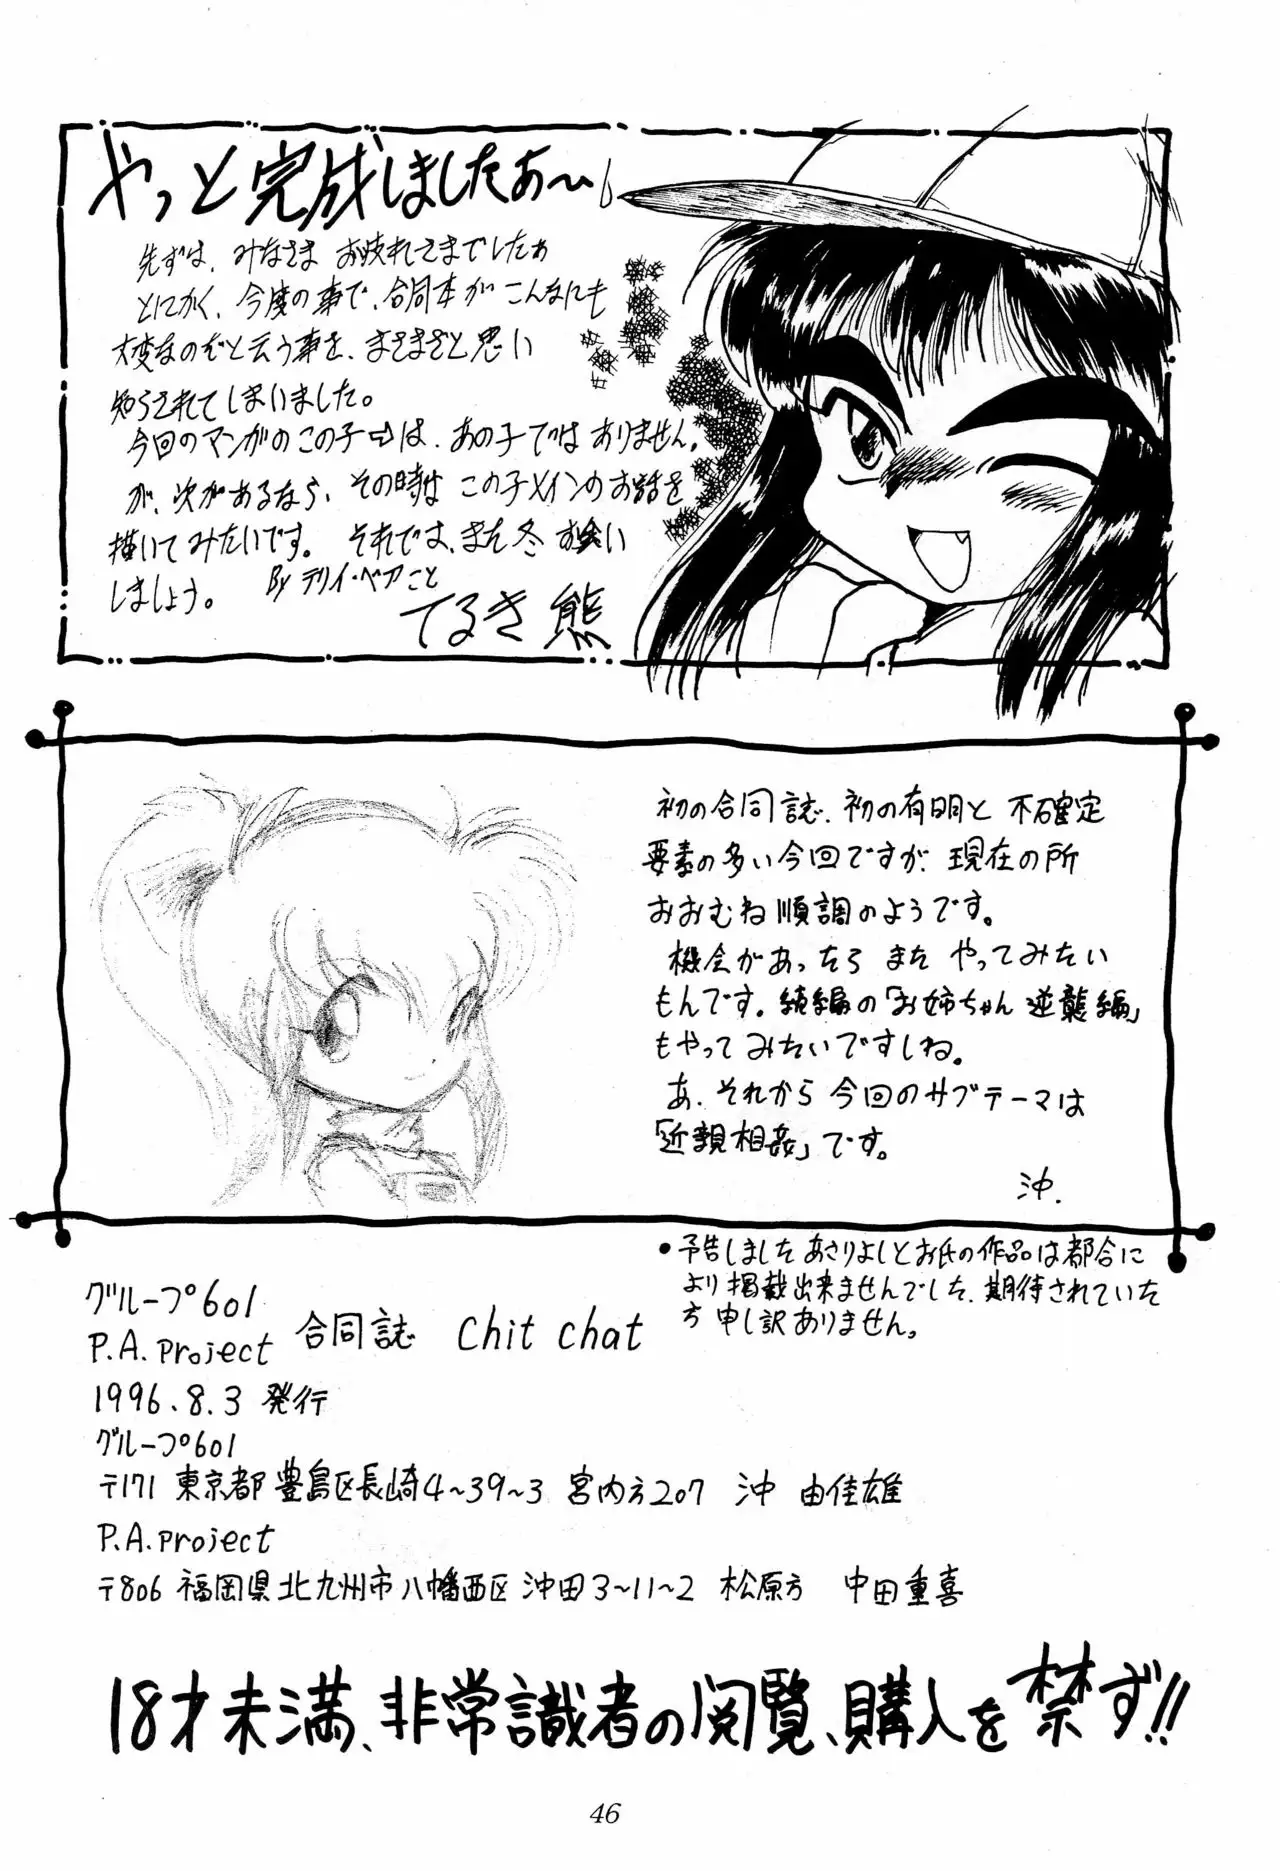 やっと完成しましたあ〜
先ずは、みなさま お疲れさまでしたぁ
とにかく、今度の事で、合同本がこんなにも
大変なのぞと云う事を、まざまざと思い
知らされてしまいました。
今回のマンガのこの子⇨は、あの子ではありません。
が、次があるなら、その時はこの子メインのお話を
描いてみたいです。それでは、また冬お会い
しましょう。 By テリイ・ベアこと
てるき熊
初の合同誌、初の有明と 不確定
要素の多い今回ですが、現在の所
おおむね順調のようです。
機会があったら また やってみたい
もんです。続編の「お姉ちゃん 逆襲編」
もやってみたいですしね。
あ、それから 今回のサブテーマは
「近親相姦」です。
沖.
●予告しましたあさりよしとお氏の作品は都合に
より掲載出来ませんでした、期待されていた
方 申し訳ありません。
グループ601
P.A.Project 合同誌 Chit chat
1996.8.3 発行
グループ601
〒171 東京都 豊島区長崎4〜39〜3 宮内方207 沖 由佳雄
P.A.Project
〒806 福岡県北九州市八幡西区 沖田3〜11〜2 松原方 中田重喜
18才未満、非常識者の閲覧、購入を禁ず!!
46